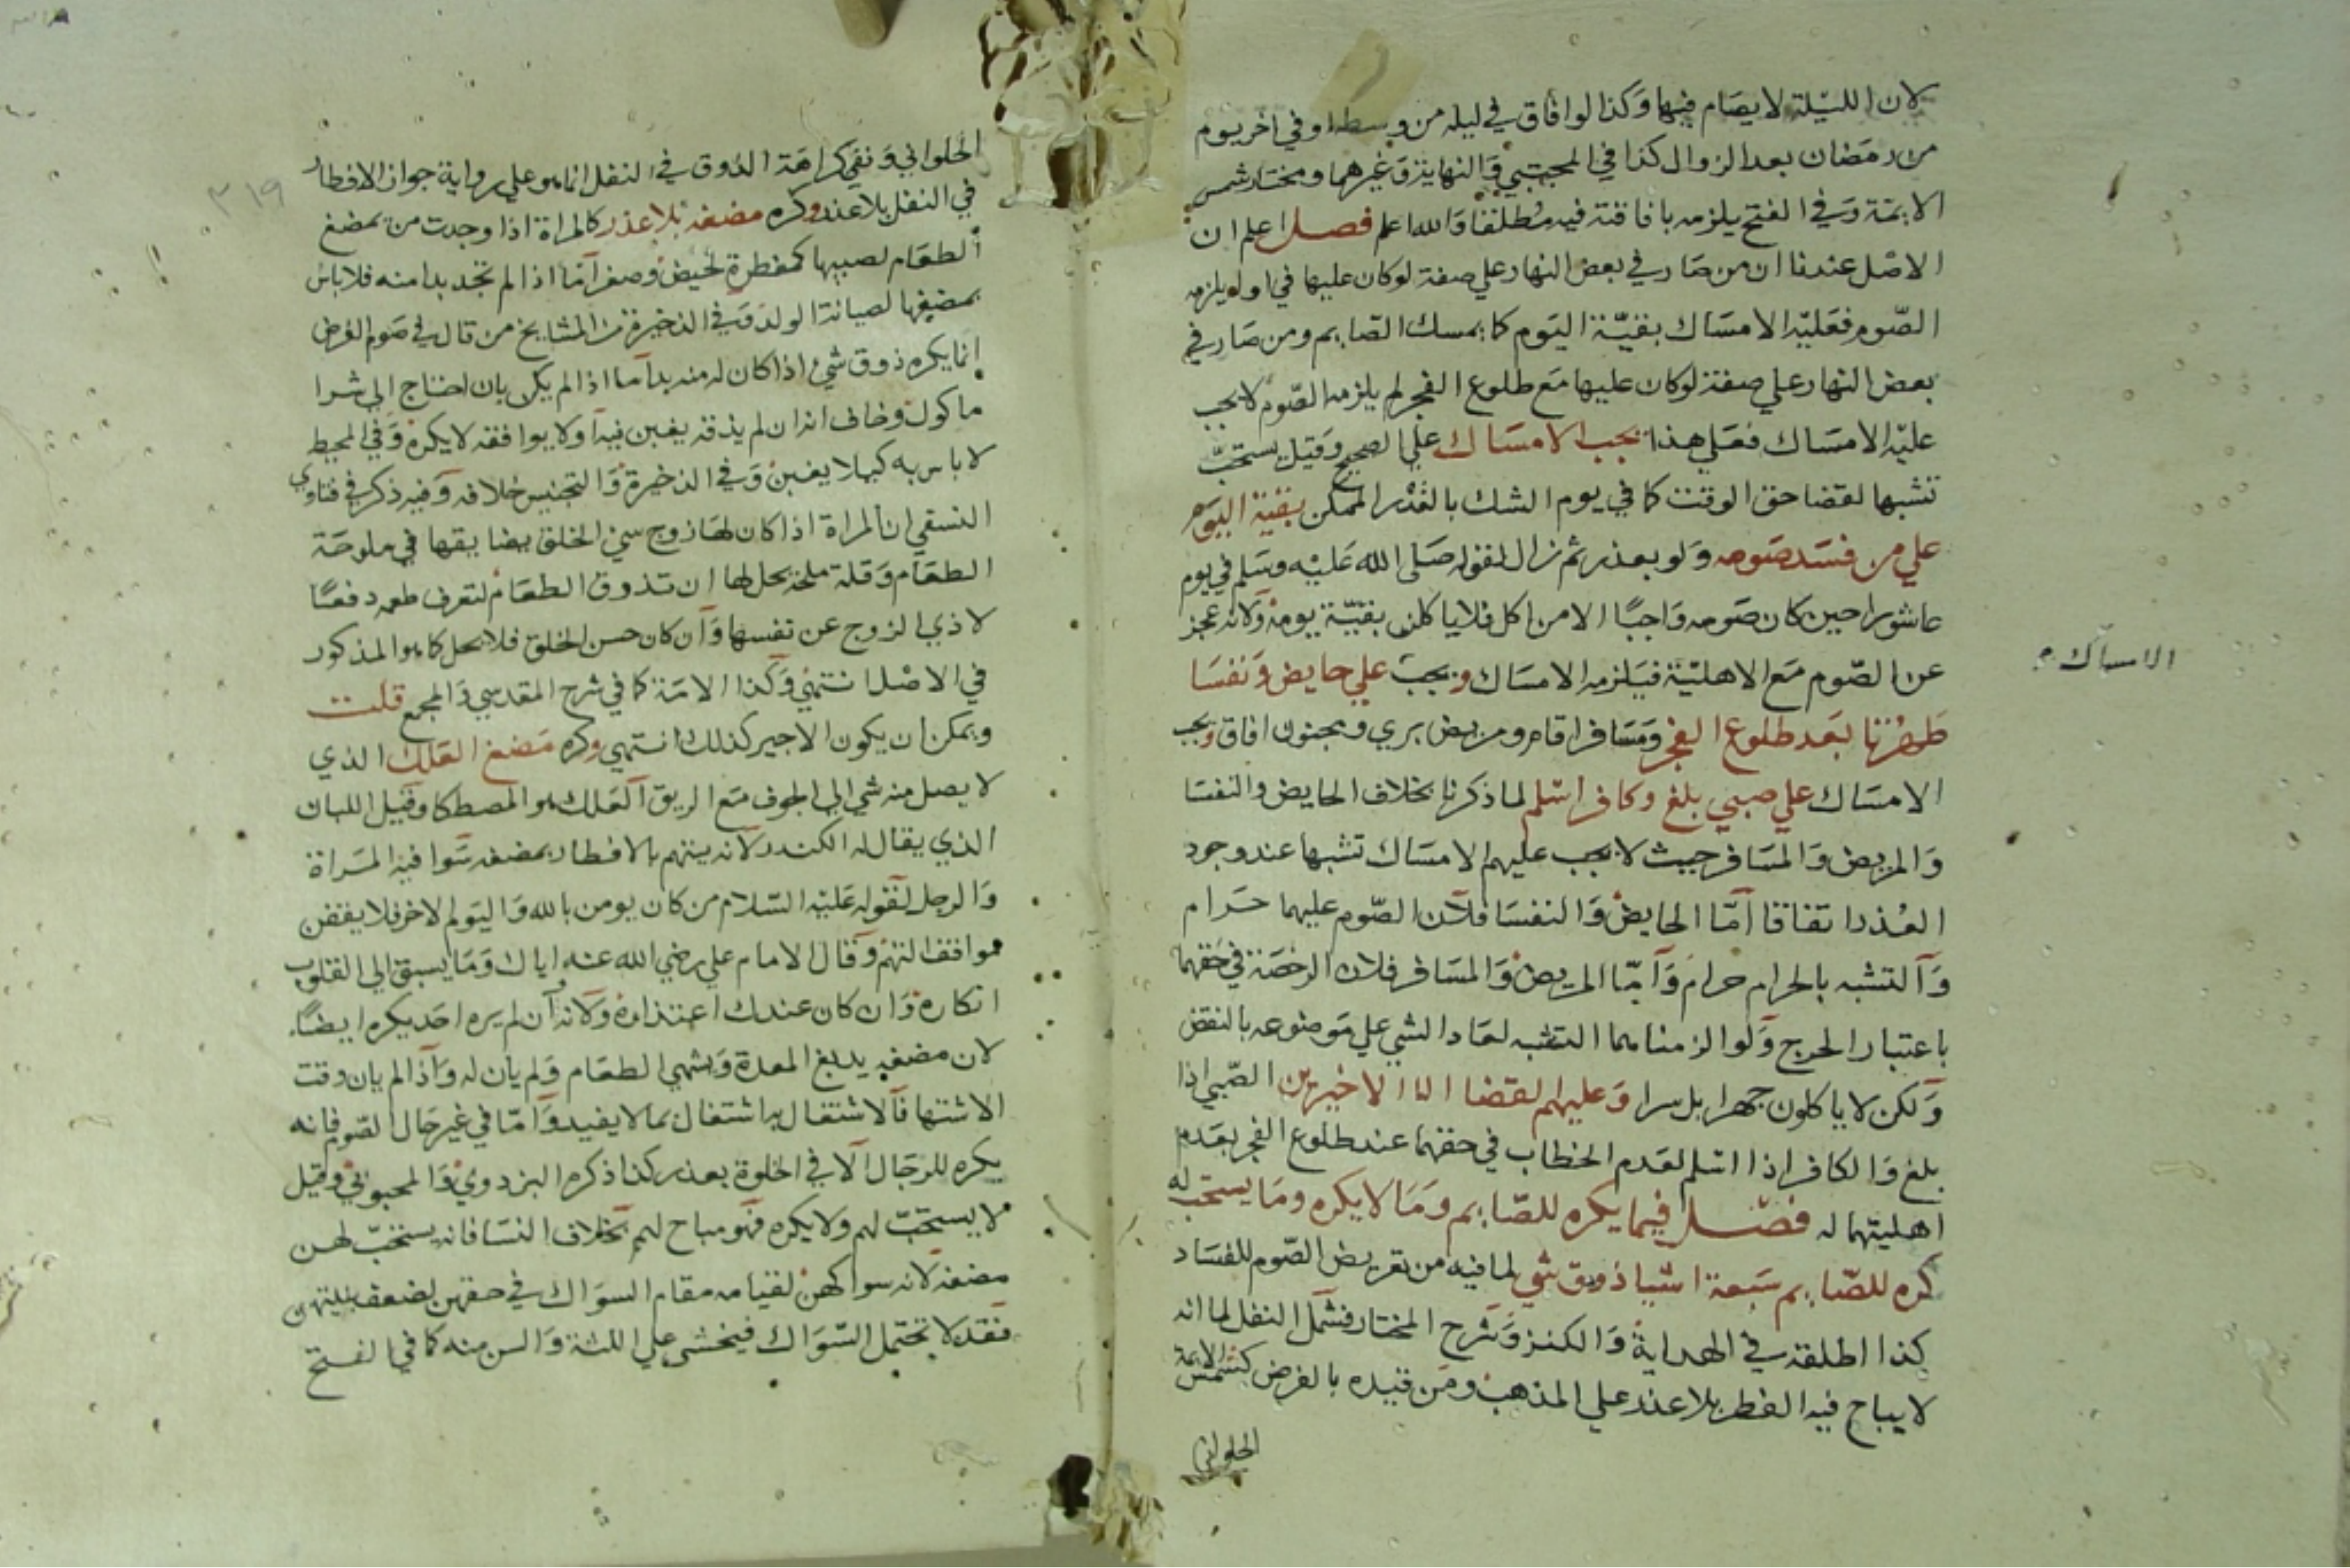 لان الليلة لا يصام فيها وكذا لو افاق في ليلة من وسطه او في اخر يوم
من رمضان بعد الزوال كذا في المجتبي والنهاية وغيرهما ومختار شمس
الايمة وفي الفتح يلزمه بافاقته فيه مطلقا والله اعلم فصل اعلم ان
الاصل عندنا ان من صار في بعض النهار علي صفة لو كان عليها في اوله يلزمه
الصوم فعليه الامساك بقية اليوم كما يمسك الصايم ومن صار في
بعض النهار علي صفة لو كان عليها مع طلوع الفجر لم يلزمه الصوم لا يجب
عليه الامساك فعلي هذا يجب الامساك علي الصحيح وقيل يستحب
تشبها لقضا حق الوقت كما في يوم الشك بالقدر الممكن بقية اليوم
علي من فسد صومه ولو بعذر ثم زال لقوله صلى الله عليه وسلم في يوم
عاشورا حين كان صومه واجبا الا من اكل فلا ياكلن بقية يومه ولانه عجز
عن الصوم مع الاهلية فيلزمه الامساك ويجب علي حايض ونفسا
طهرتا بعد طلوع الفجر ومسافر اقام ومريض بري ومجنون افاق ويجب
الامساك علي صبي بلغ وكافر اسلم لما ذكرنا بخلاف الحايض والنفسا
والمريض والمسافر حيث لا يجب عليهم الامساك تشبها عند وجود
العذر اتفاقا اما الحايض والنفسا فلان الصوم عليهما حرام
والتشبه بالحرام حرام واما المريض والمسافر فلان الرخصة في حقهما
باعتبار الحرج ولو الزمناهما التشبه لعاد الشي علي موضوعه بالنقض
ولكن لا ياكلون جهرا بل سرا وعليهم القضا الا الاخيرين الصبي اذا
بلغ والكافر اذا اسلم لعدم الخطاب في حقهما عند طلوع الفجر بعدم
اهليتهما له فصل فيما يكره للصايم وما لا يكره وما يستحب له
كره للصايم سبعة اشيا ذوق شي لما فيه من تعريض الصوم للفساد
كذا اطلقه في الهداية والكنز وشرح المختار فشمل النفل لما انه
لا يباح فيه الفطر بلا عذر علي المذهب ومن قيده بالفرض كشمس الايمة
الحلواني
الامساك
٣١٩
الحلواني ونفي كراهة الذوق في النفل انما هو علي رواية جواز الافطار
في النفل بلا عذر وكره مضغه بلا عذر كالمراة اذا وجدت من يمضغ
الطعام لصبيها كمفطرة لحيض وصغر اما اذا لم تجد بدا منه فلا باس
بمضغها لصيانة الولد وفي الذخيرة من المشايخ من قال في صوم الفرض
انما يكره ذوق شي اذا كان له منه بد اما اذا لم يكن بان احتاج الي شرا
ماكول وخاف انه ان لم يذقه يغبن فيه او لا يوافقه لا يكره وفي المحيط
لا باس به كيلا يغبن وفي الذخيرة والتجنيس خلافه وفيه ذكر في فتاوي
النسفي ان المراة اذا كان لها زوج سي الخلق يضايقها في ملوحة
الطعام وقلة ملحه يحل لها ان تذوق الطعام لتعرف طعمه دفعا
لاذي الزوج عن نفسها وان كان حسن الخلق فلا يحل كما هو المذكور
في الاصل انتهي وكذا الامة كما في شرح المقدسي والمجمع قلت
ويمكن ان يكون الاجير كذلك انتهي وكره مضغ العلك الذي
لا يصل منه شي الي الجوف مع الريق العلك هو المصطكا وقيل اللبان
الذي يقال له الكندر لانه يتهم بالافطار بمضغه سوا فيه المراة
والرجل لقوله عليه السلام من كان يومن بالله واليوم الاخر فلا يقفن
مواقف التهم وقال الامام علي رضي الله عنه اياك وما يسبق الي القلوب
انكاره وان كان عندك اعتذاره ولانه ان لم يره احد يكره ايضا
لان مضغه يدبغ المعدة ويشهي الطعام ولم يان له واذا لم يان وقت
الاشتها فالاشتغال به اشتغال بما لا يفيد واما في غير حال الصوم فانه
يكره للرجال الا في الخلوة بعذر كذا ذكره البزدوي والمحبوبي وقيل
لا يستحب لهم ولا يكره فهو مباح لهم بخلاف النسا فانه يستحب لهن
مضغه لانه سواكهن لقيامه مقام السواك في حقهن لضعف بنيتهن
فقد لا تحتمل السواك فيخشي علي اللثة والسن منه كما في الفتح